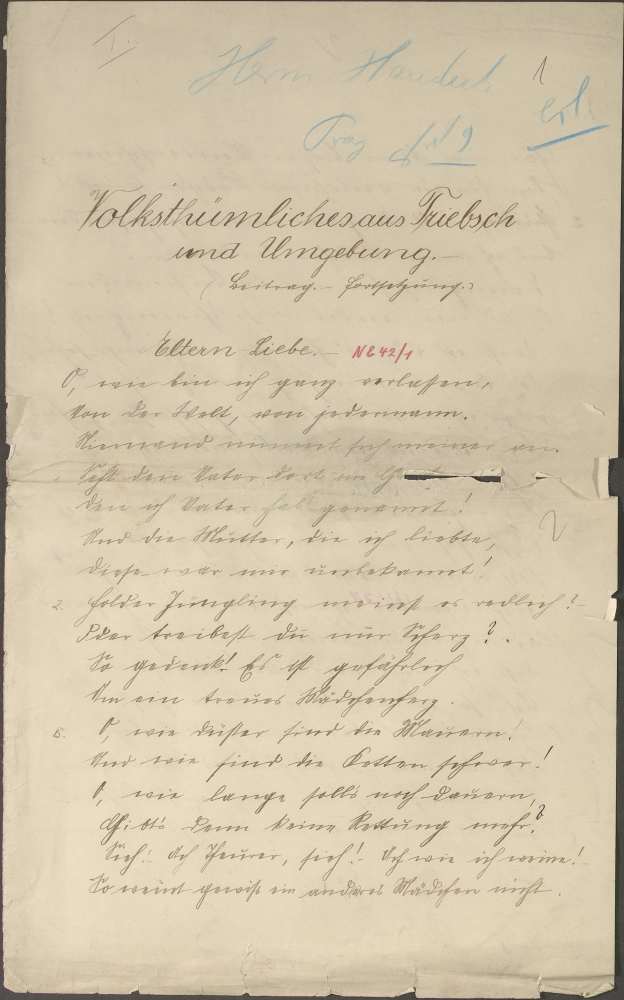 I.
Herrn
1
Prag
erl.
Volksthümliches aus Triebsch
und Umgebung.-
(Beitrag.- Fortsetzung.)
Eltern-Liebe.- NE 42/1
O, wie bin ich ganz verlassen,
Von der Welt, von jedermann.
Niemand nimmt sich meiner an.
den Vater dort im
den ich Vater hab genannt!
Und die Mutter, die ich liebte,
2
Diese war mir unbekannt!
2. Holder Jüngling meinst es redlich?
Oder treibest du nur Scherz?
So gedenk! Es ist gefährlich
Um ein treues Mädchenherz.
3. O, wie düster sind die Mauern!
Und wie sind die Ketten schwer!
O, wie lange solls noch dauern,
Gibts denn keine Rettung mehr?
Sieh! Ach Theurer, sieh! Ach wie ich weine!
So weint gewiß ein anderes Mädchen nicht.